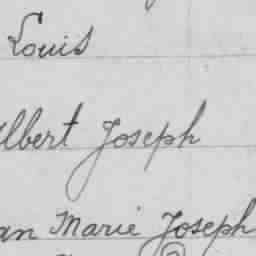 Louis
Albert Joseph
an Marie Joseph